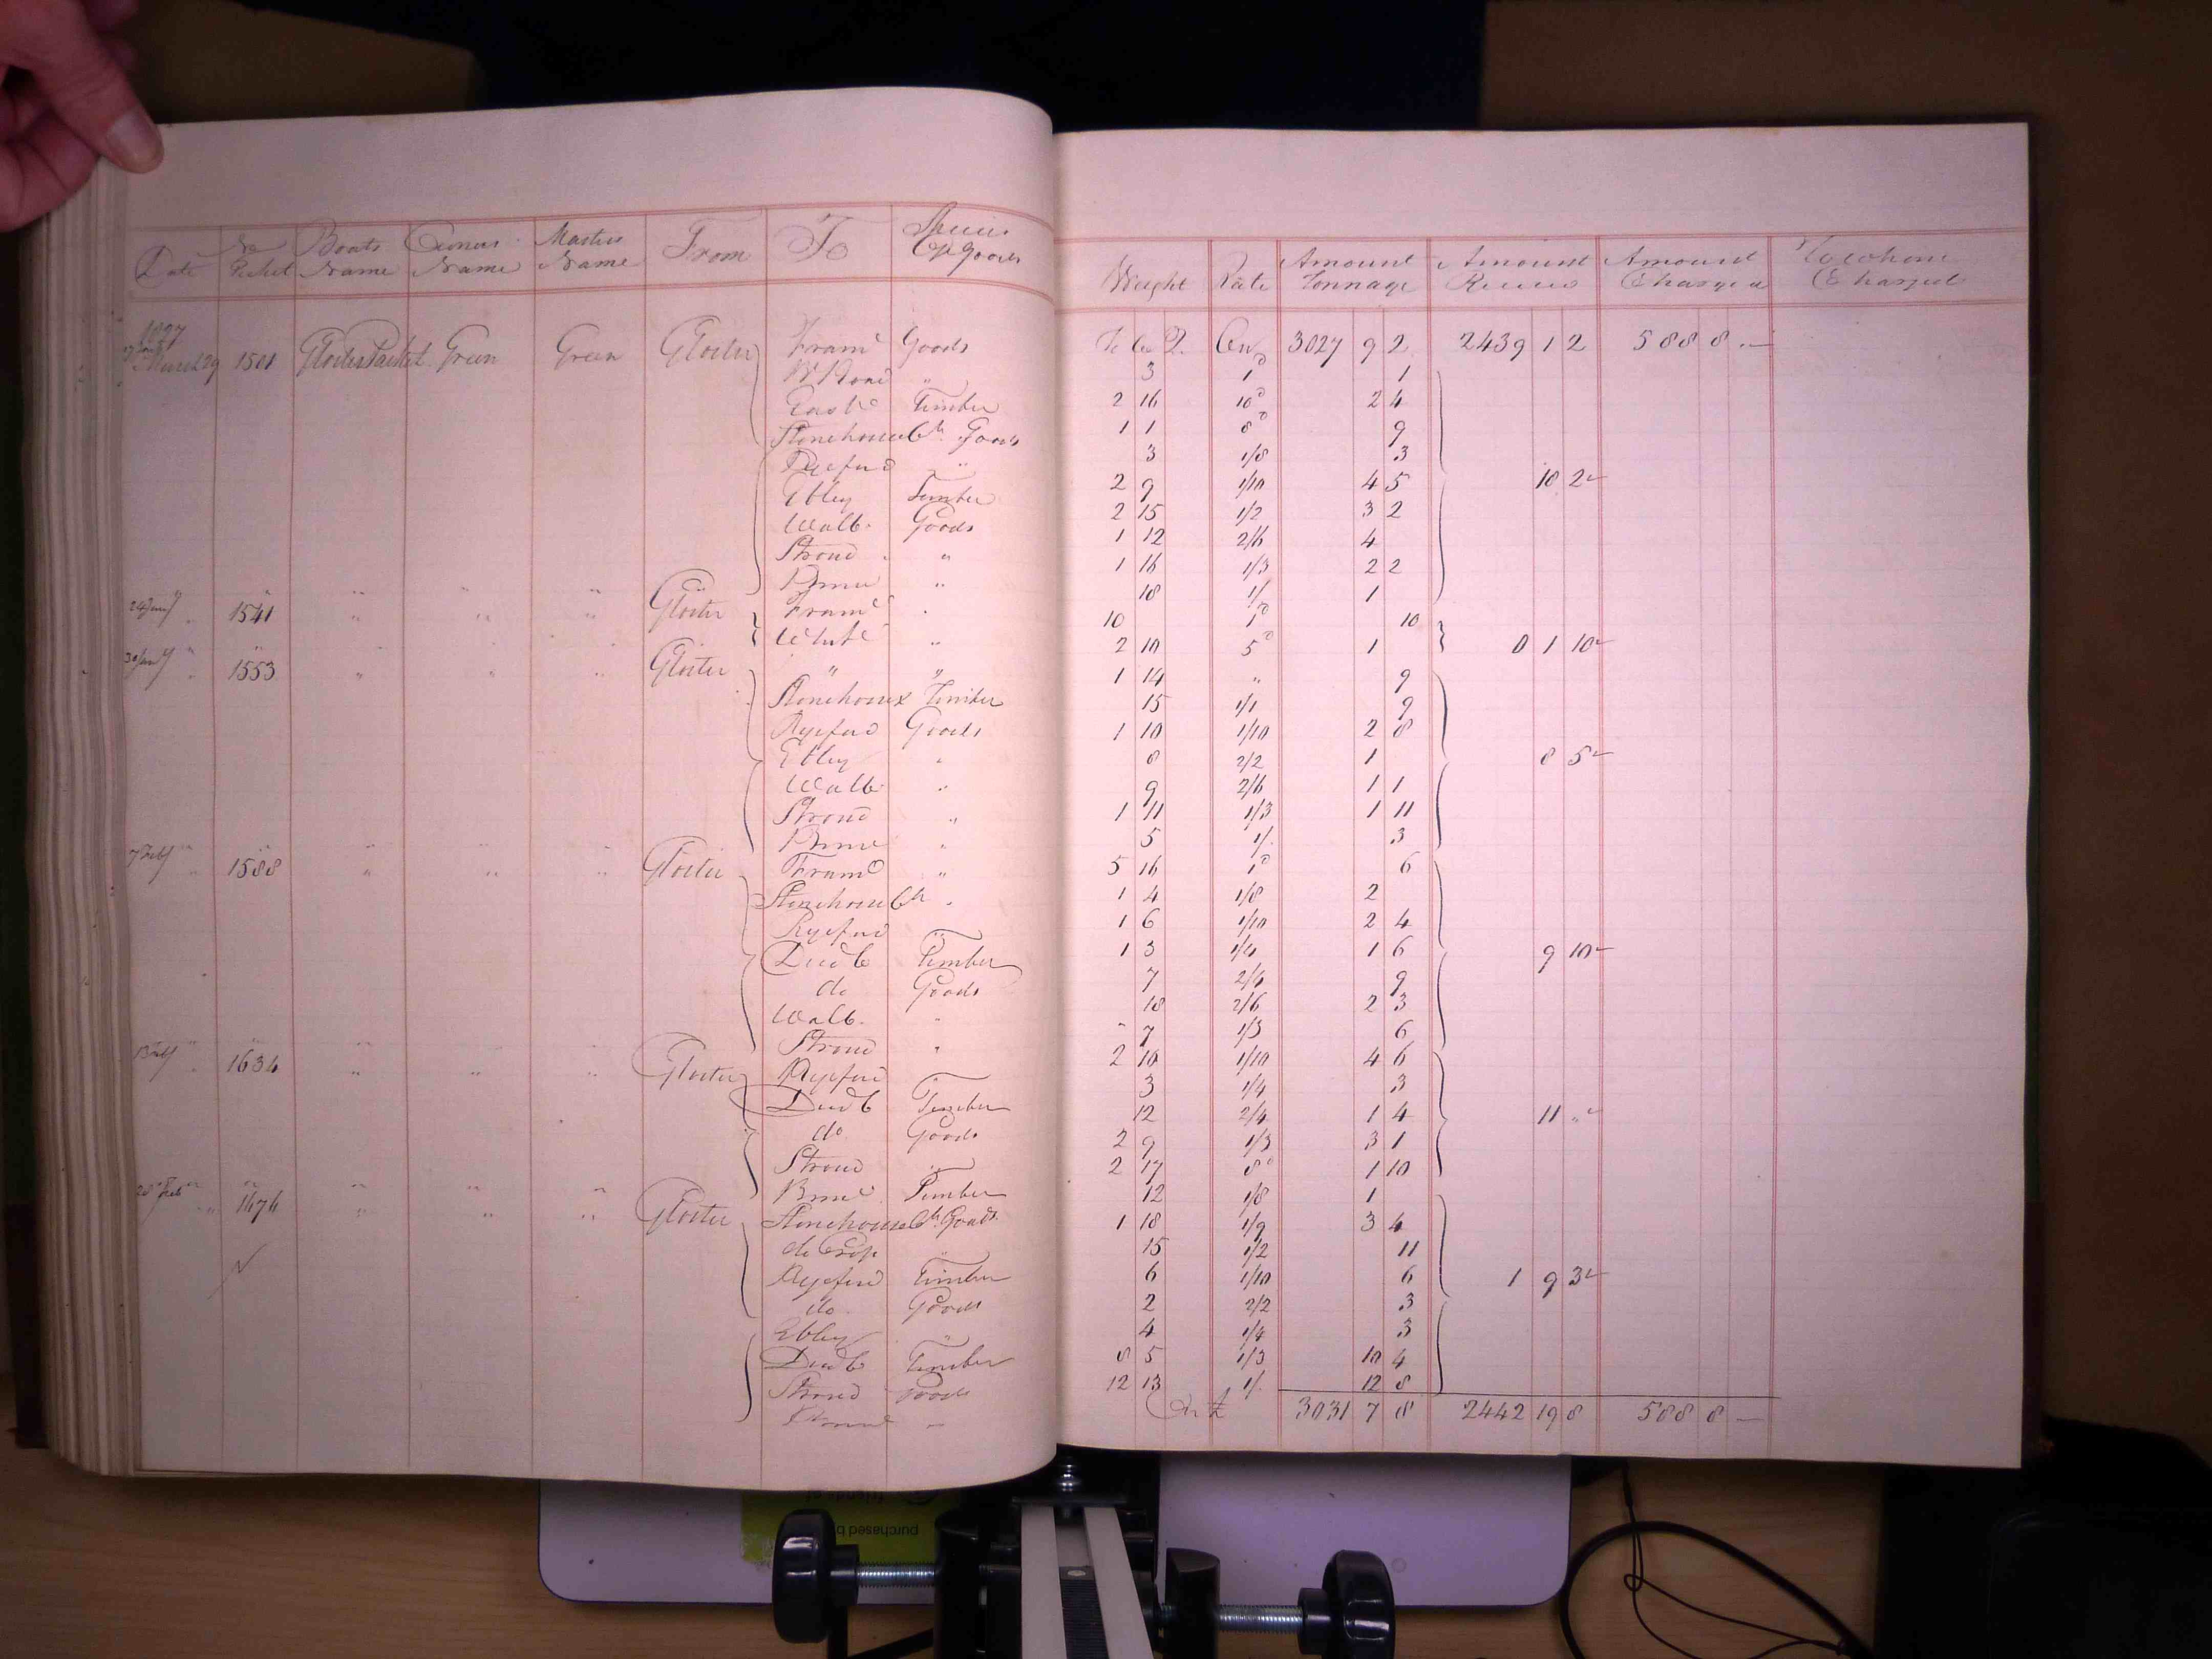 Date No Ticket Boats Name Owners Name Masters Name From To Species Of Goods Weight Rate Amount Tonnage Amount Received Amount Charged To whom Charged
1827 To Cw Q. 3027 9 2 2439 1 2 588 8 . —
March 29 1501 Gloster Packet Green Green Gloster Fram Goods 3 1d 1
" 2 16 10d 2 4
Eastn Timber 1 1 8d 9
Stonehouse Ch Goods 3 1/8 3
Ryeford " 2 9 1/10 4 5 10 2
Ebley Timber 2 15 1/2 3 2
Wallb. Goods 1 12 2/6 4
Stroud " 1 16 1/3 2 2
Brims " 18 1/ 1
24 Jany 1541 " " " Gloster Fram " 10 1d 10
Whit " 2 10 5d 1 0 1 10
30 Jany 1553 " " " Gloster " " 1 14 " 9
Stonehouse Timber 15 1/1 9
Ryeford Goods 1 10 1/10 2 8
Ebley " 8 2/2 1 8 5
Wallb " 9 2/6 1 1
Stroud " 1 11 1/3 1 11
Brims " 5 1/. 3
7 Feby 1588 " " " Gloster Fram " 5 16 1d 6
Stonehouse Ch " 1 4 1/8 2
Ryeford " 1 6 1/10 2 4
Dudb Timber 1 3 1/4 1 6 9 10
do Goods 7 2/4 9
Wallb. " 18 2/6 2 3
Stroud " 7 1/3 6
13 Feby 1634 " " " Gloster Ryeford " 2 10 1/10 4 6
Dudb Timber 3 1/4 3
do Goods 12 2/4 1 4 11 "
Stroud " 2 9 1/3 3 1
Brims Timber 2 17 8d 1 10
20 Feb 1676 " " " Gloster Stonehouse Ch Goods 12 1/8 1
do " 1 18 1/9 3 4
Ryeford Timber 15 1/2 11
do Goods 6 1/10 6 1 9 3
Ebley " 2 2/2 3
Dudb Timber 4 1/4 3
Stroud Goods 8 5 1/3 10 4
" 12 13 1/. 12 8
3031 7 8 2442 19 8 588 8 —
purchased b
friends of